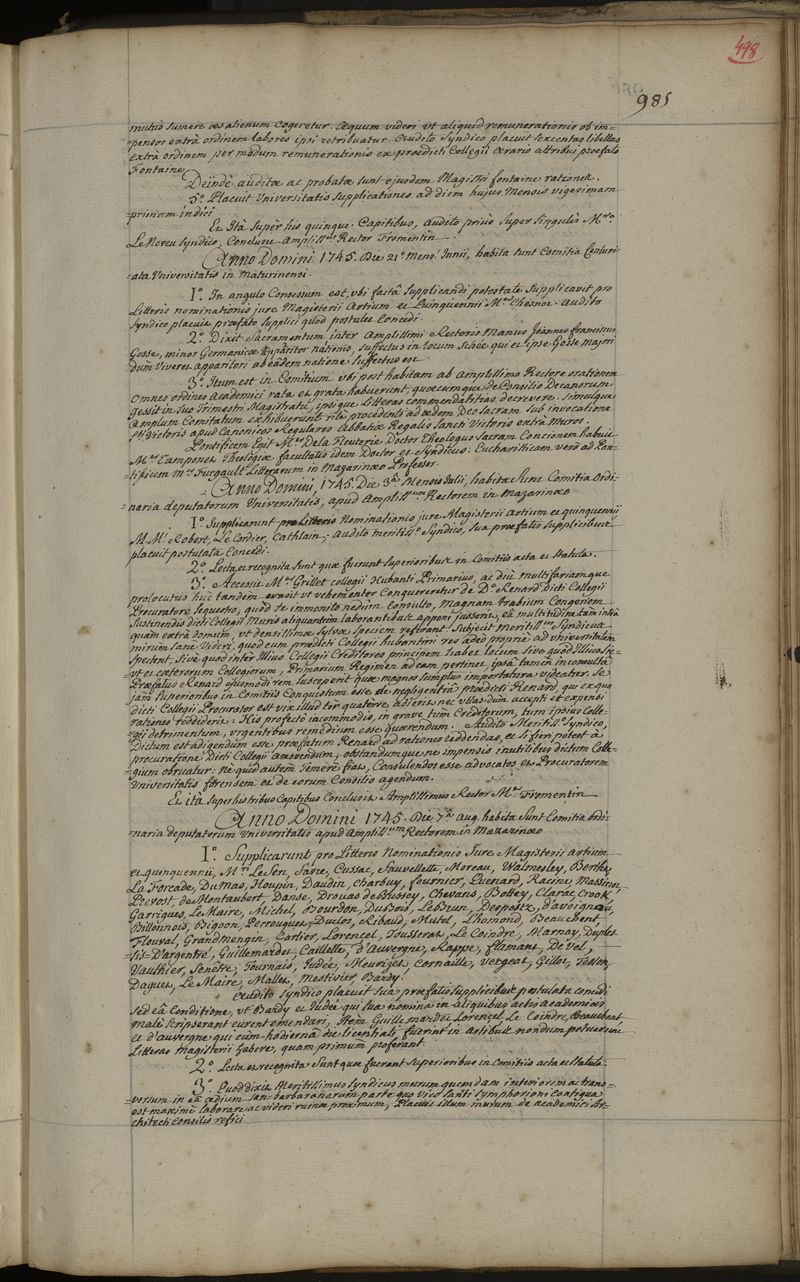 498
985
mutuò sumere æs alienum cogeretur. Æquum videri vt aliquid remunerationis ob im=
=pensos extrà ordinem labores ipsi retribuatur. Audito Syndico placuit sexcentas libellas
extrà ordinem per modum remunerationis ex prædicti Collegii ærario attribui præfato
Fontaine
Deindè auditæ ac probatæ sunt ejusdem Magistri fontaine rationes.
5.º Placuit Universitatis supplicationes ad diem hujus Mensis vigesimam
=primam indici
Et Ità Super his quinque Capitibus, audito priùs super singulis M.ro
Le Neveu Syndico, Conclusit Ampliss.us Rector Fromentin.
Anno Domini 1745. Die 21.â Mens. Junii, habita sunt Comitia Centuri=
=ata Universitatis in Maturinensi.
1.º In angulo Consessum est, vbi factâ supplicandi potestate supplicavit pro
Litteris nominationis jure Magisterii Artium et Quinquennii M.er Chesnon. Audito
Syndico placuit præfato supplici quod postulet Concedi.
2.º Dixit Sacramentum inter Amplissimi Rectoris Manus Joannes franciscus
Gosse, minor Germanicæ Apparitor nationis, suffectus in locum qui et ipse Gosse majori
dum viveret apparitori ab eâdem natione suffectus est
3.º Itum est in Comitium vbi post habitam ab Amplissimo Rectore orationem
Omnes ordines Academici rata et grata habuerunt quæcumque De Consilio Decanorum
gessit in suo Trimestri Magistratu, ipsique Litteras commendatitias decrevere. Simulque
Amplum Comitatum exhibuerunt ritè procedenti ad ædem Deo sacram sub invocatione
Sti Victoris apud Canonicos Regulares Abbatiæ Regalis Sancti Victoris extrà muros.
Pontificem Egit M.er De la Fleuterie Doctor Theologus Sacram Concionem habuit
M.er Camponet Theologiæ facultatis idem Doctor et Syndicus. Eucharisticam verò ad Pon=
tificem M.er Furgault Litterarum in Mazarinæo Professor.
Anno Domini, 1745. Die 3.â Mensis Julii, habita sunt Comitia Ordi=
naria deputatorum Universitatis, apud Ampliss.um Rectorem in Mazarinæo
1.º Supplicarunt pro Litteris Nominationis jure Magisterii Artium et quinquennii
M.M.i Robert, Le Cordier, Cathlain; Audito meritiss.o Syndico, sua præfatis supplicibus
placuit postulata Concedi.
2.º Lecta et recognita sunt quæ fuerunt superioribus in Comitiis acta et statuta.
3.º Accessit M.er Grillet collegii Hubanti Primarius, ac diù multifariamque
prolocutus huc tandem evasit vt vehementer Conquereretur de D.o Renard Dicti Collegii
Procuratore sequestro, quod se immonito nedum Consulto, Magnam trabium Congeriem
Sustinendis dicti Collegii Muris aliquantùm laborantibus apponi jusserit, eâ multitudine tam intrà
quam extrà domum, vt densissimæ Sylvæ speciem referant. Subjecit meritiss.us Syndicus
mirum sane videri, quod cum prædicti Collegii hubantini res adeò propriè ad vniversitatem
spectent, sive quod inter illius Collegii Creditores principem habet locum sive quod illius sic=
=vt et cæterorum Collegiorum, Primarium Regimen ad eam pertinet, ipsâ tamen inconsultâ
Præfatus Renard ejusmodi rem susceperit quæ magnos sumptus importatura videatur. Se
jam superioribus in Comitiis Conquestum esse de negligentiâ prædicti Renard, qui ex quo
dicti Collegii Procurator est vix illud ter quatérve adierit, nec vllas dum accepti et expensi
rationes reddiderit: His profectò incommodis, in grave tùm Creditorum, tùm ipsius Colle=
=gii detrimentum, vrgentibus remedium esse quærendum. Audito Meritiss.o Syndico,
Dictum est adigendum esse præfatum Renard ad rationes reddendas, et si fieri potest à
procuratione Dicti Collegii Amovendum; obstandumque ne impensis inutilibus dictum Colle=
=gium obruatur: Ne quid autem temerè fiat, Consulendos esse advocatos et Procuratorem
Universitatis forensem et de eorum Consilio agendum.
Et ità super his tribus Capitibus Conclusit Amplissimus Rector M.er Fromentin
Anno Domini 1745. Die 7.â Aug. habita sunt Comitia ordi=
=naria deputatorum Universitatis apud Ampliss.um Rectorem in Mazarinæo
1.º Supplicarunt pro Litteris Nominationis Jure Magisterii Artium
et quinquennii, M.ri Le Sen, Sarre, Cussac, Sauvellette, Moreau, Walmesley, Berthe,
La Forcade, Dumas, Houpin, Daudin, Charbuy, fournier, Quenard, Racine, Massinot,
Prevost, de Montaubert, Danse, Drouas de Boussey, Chevans, Bottey, Clarac, Crook,
Garrigues, Le Maire, Michel, Bourdon, Dubois, Le Brun, Despotez, d'avoignau,
Billonnois, Bigoon, Perrouques, Duclos, Ribauld, Mutel, Lhomond, Beauchent,
Flouval, Grandmengin, Cartier, Lorencel, Tousseras, Le Coindre, Marnay, Duples
sis-D'argentré, Guillemardet, Caillette, d'Auvergne, Rappe, flamant, De vel,
Vauthier, Senêtre, Tournais, Judée, Meuriget, Cornaille, Vergeat, Gillot, Tesson,
Dagues, Le Maire, Mallet, Mestivier, Bardy.
Audito Syndico placuit sua præfatis supplicibus postulata concedi
sed eâ Conditione, vt Bardy et Judée qui sua nomina in aliquibus actis academicis
malè scripserant curent emendari, Item Guillemardet Lorencel, Le Coindre, Beauchent
et d'auvergne qui cùm hodiernâ die licentiati fuerint in Artibus nondum potuerunt
Litteras magisterii habere, quam primum proferant.
2.º Lecta et recognita sunt quæ fuerant superioribus in Comitiis acta et statuta.
3.º Quod dixit Meritissimus Syndicus murum quemdam interiorem ac trans=
=versum in eâ ædium San-barbaranarum parte quo vico Santi Symphoriani Contigua
est maximè laborare ac videri ruinæ proximum, Placuit illum murum de academici Ar=
chitecti Consilio refici